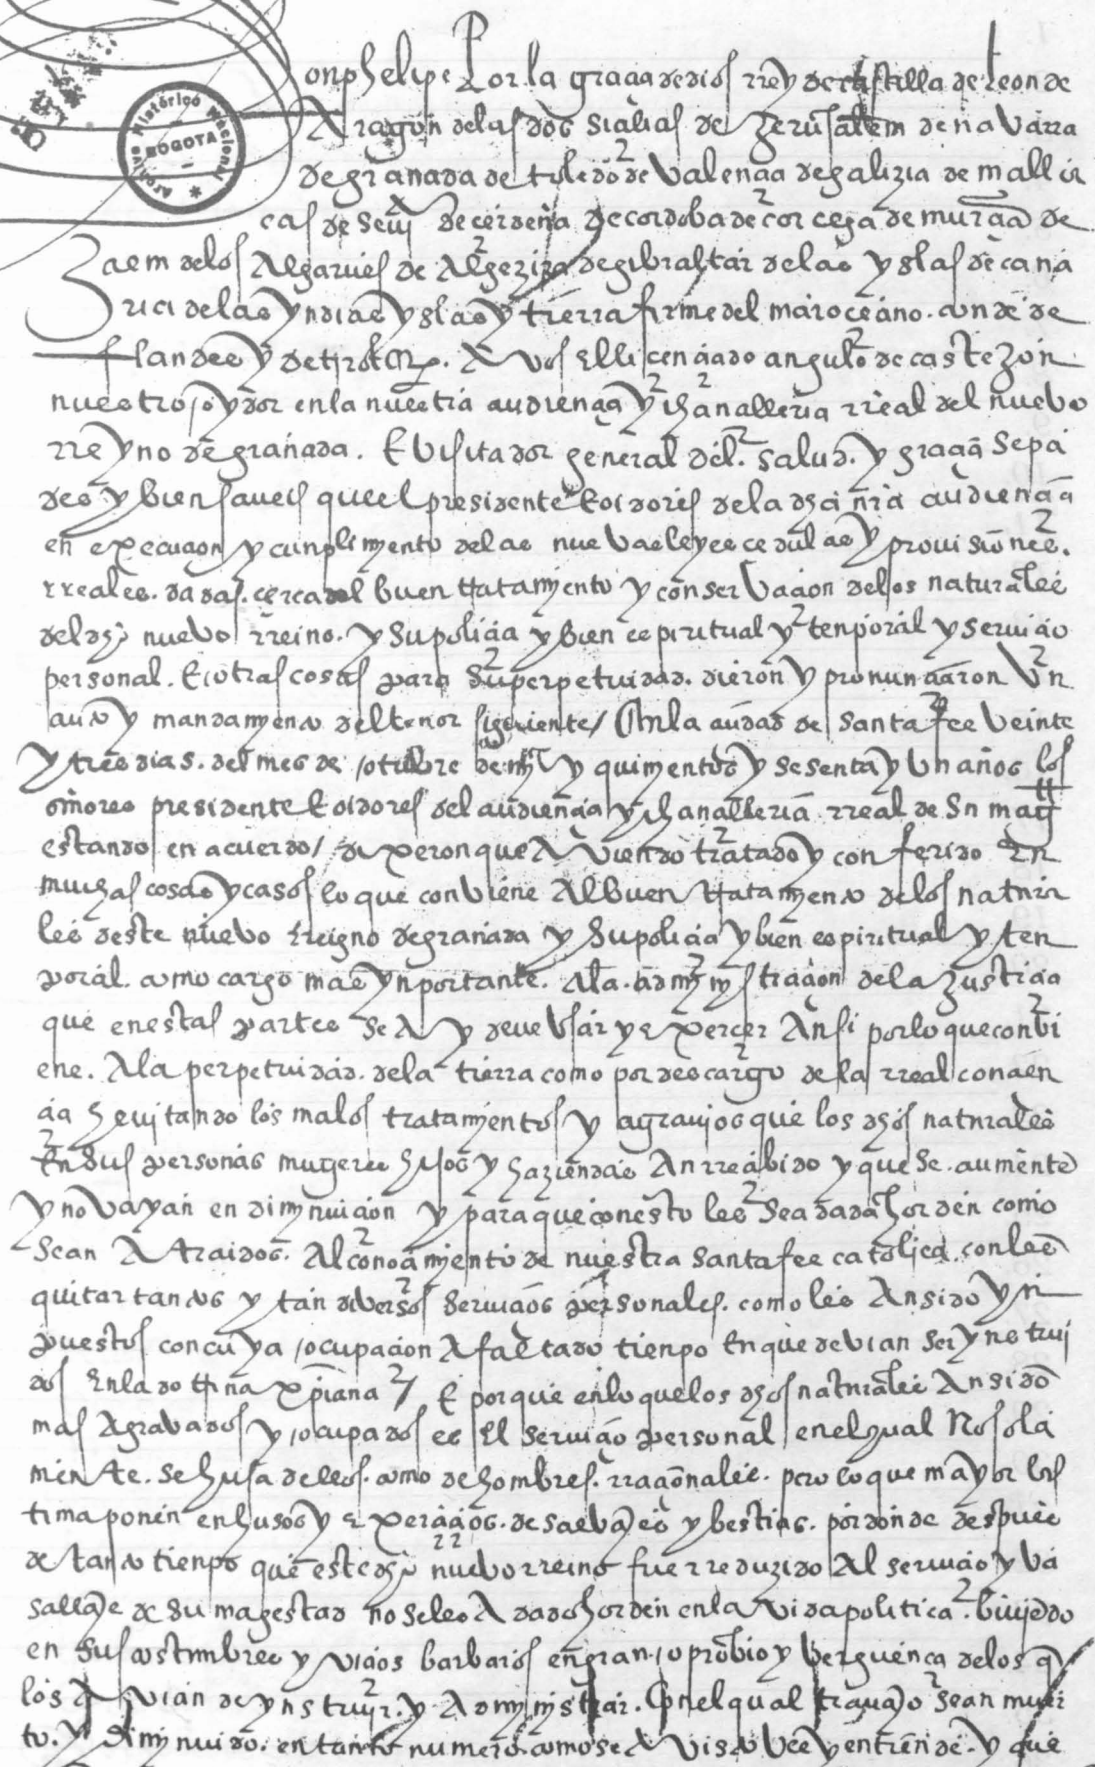 Archivo Histórico Nacional
BOGOTA
on phelipe Por la graçia de dios rrey de castilla de leon de
Aragon de las dos siçilias de Jerusalem de navarra
de granada de toledo de valençia de galizia de mallor
cas de sevi de cerdeña de cordoba de corcega de murçia de
Jaem de los Algarves de Algezira de gibraltar de las yslas de cana
ria de las yndias yslas y tierra firme del mar oceano. conde de
flandes y de tirol &. A vos El licençiado angulo de castejon
nuestro oydor en la nuestra audiençia y chançilleria rreal del nuevo
rreyno de granada. E visitador general del. salud. y graçia sepa
des y bien saveis que el presidente E oidores de la dha nra audiençia
en execuçion y cunplimyento de las nuevas leyes cedulas y provisiones.
rreales. dadas. cerca del buen tratamyento y conservaçion de los naturales
del dho nuevo rreino. y su poliçia y bien espiritual y tenporal y serviçio
personal. E otras cosas para su perpetuidad. dieron y pronunçiaron Un
auto y mandamyento del tenor siguiente / En la çiudad de santa fee veinte
y tres dias. del mes de otubre de myl y quinientos y sesenta y Un años los
señores presidente E oidores del audiençia y chançilleria rreal de Su magt
estando en acuerdo / dixeron que Aviendo tratado y conferido En
muchas cosas y casos lo que conviene Al buen tratamyento de los natura
les deste nuevo rreigno de granada y su poliçia y bien espiritual y ten
poral. como cargo mas ynportante. A la. admynystraçion de la Justiçia
que en estas partes se A y deve Usar y exerçer Ansi por lo que conbi
ene. A la perpetuidad. de la tierra como por descargo de la rreal conçien
çia hevitando los malos tratamyentos y agravios que los dhos naturales
En sus personas mugeres hijos y haziendas An rreçibido y que se. aumente
y no vayan en dimynuiçion y para que con esto les sea dada horden como
sean Atraidos. Al conoçimyento de nuestra santa fee catolica. con les
quitar tantos y tan diversos serviçios personales. como les An sido yn
puestos con cuya ocupaçion A faltado tienpo En que devian ser ynstrui
dos En la dottrina xpiana / E porque en lo que los dhos naturales An sido
mas Agravados y ocupados es El serviçio personal en el qual No sola
mente. se husa dellos. como de hombres. rraçionales. pero lo que mayor las
tima ponen en husos y exerçiçios. de salvajes y bestias. por donde despues
de tanto tienpo que este dho nuevo rreino fue rreduzido Al serviçio y va
sallaje de su magestad no se les A dado horden en la vida politica. biviendo
en sus costumbres y viçios barbaros en gran oprobio y berguença de los q
los Avian de ynstruyr. y Admynystrar. Con el qual travajo sean muer
to. y dimynuido. en tanto numero como se A visto vee y entiende. y que